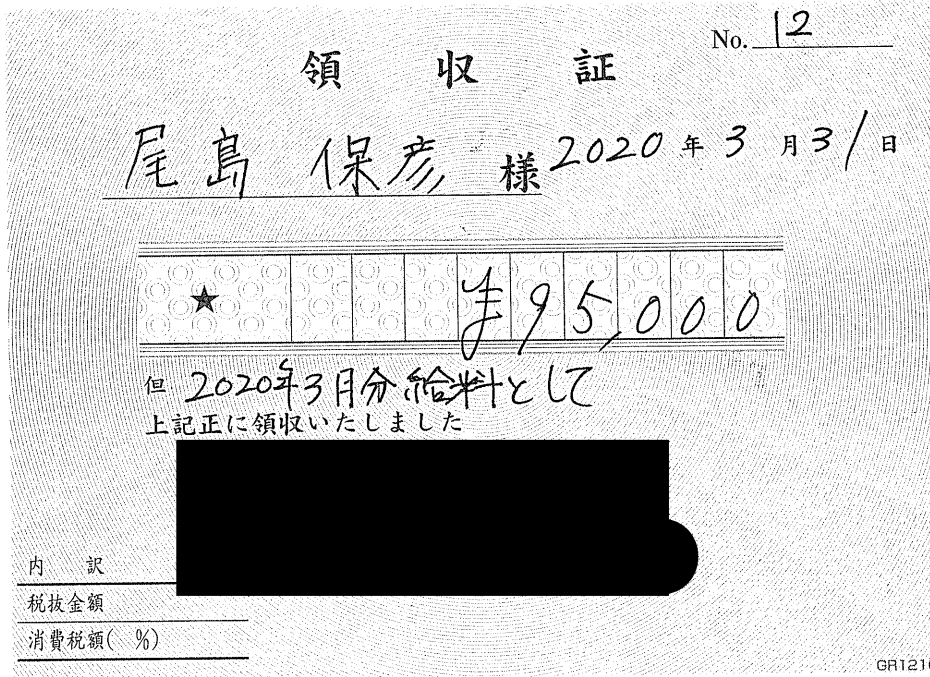 No. 12
領収証
尾島 保彦 様 2020年3月31日
★ ¥95,000
但 2020年3月分給料として
上記正に領収いたしました
内訳
税抜金額
消費税額( %)
GR1216